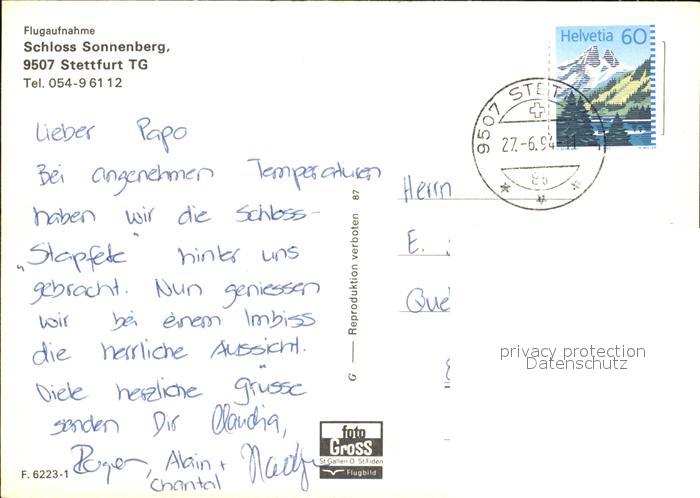 Flugaufnahme
Schloss Sonnenberg,
9507 Stettfurt TG
Tel. 054-9 61 12
Lieber Papo
Bei angenehmen Temperaturen
haben wir die Schloss-
„Stapfete“ hinter uns
gebracht. Nun geniessen
wir bei einem Imbiss
die herrliche Aussicht.
Viele herzliche Grüsse
senden Dir Claudia,
Roger, Alain +
Chantal
F. 6223-1
G — Reproduktion verboten 87
foto
GROSS
St. Gallen O. St. Fiden
Flugbild
Helvetia 60
9507 STET
27.-6.94-11
Herrn
E.
privacy protection
Datenschutz